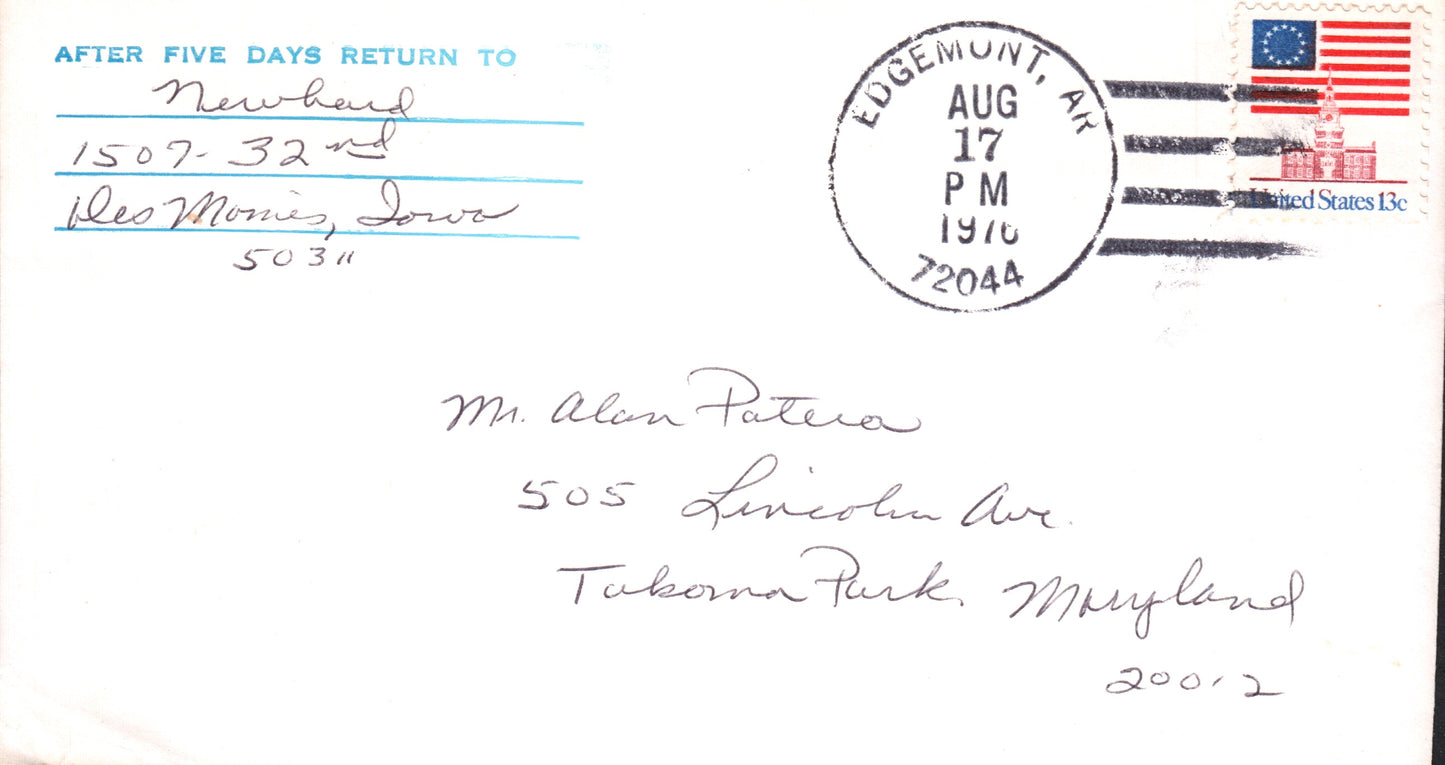 AFTER FIVE DAYS RETURN TO
Newhard
1507-32nd
Des Moines, Iowa
50311
EDGEMONT, AR
AUG
17
PM
1976
72044
United States 13c
Mr. Alan Patera
505 Lincoln Ave.
Takoma Park, Maryland
20012